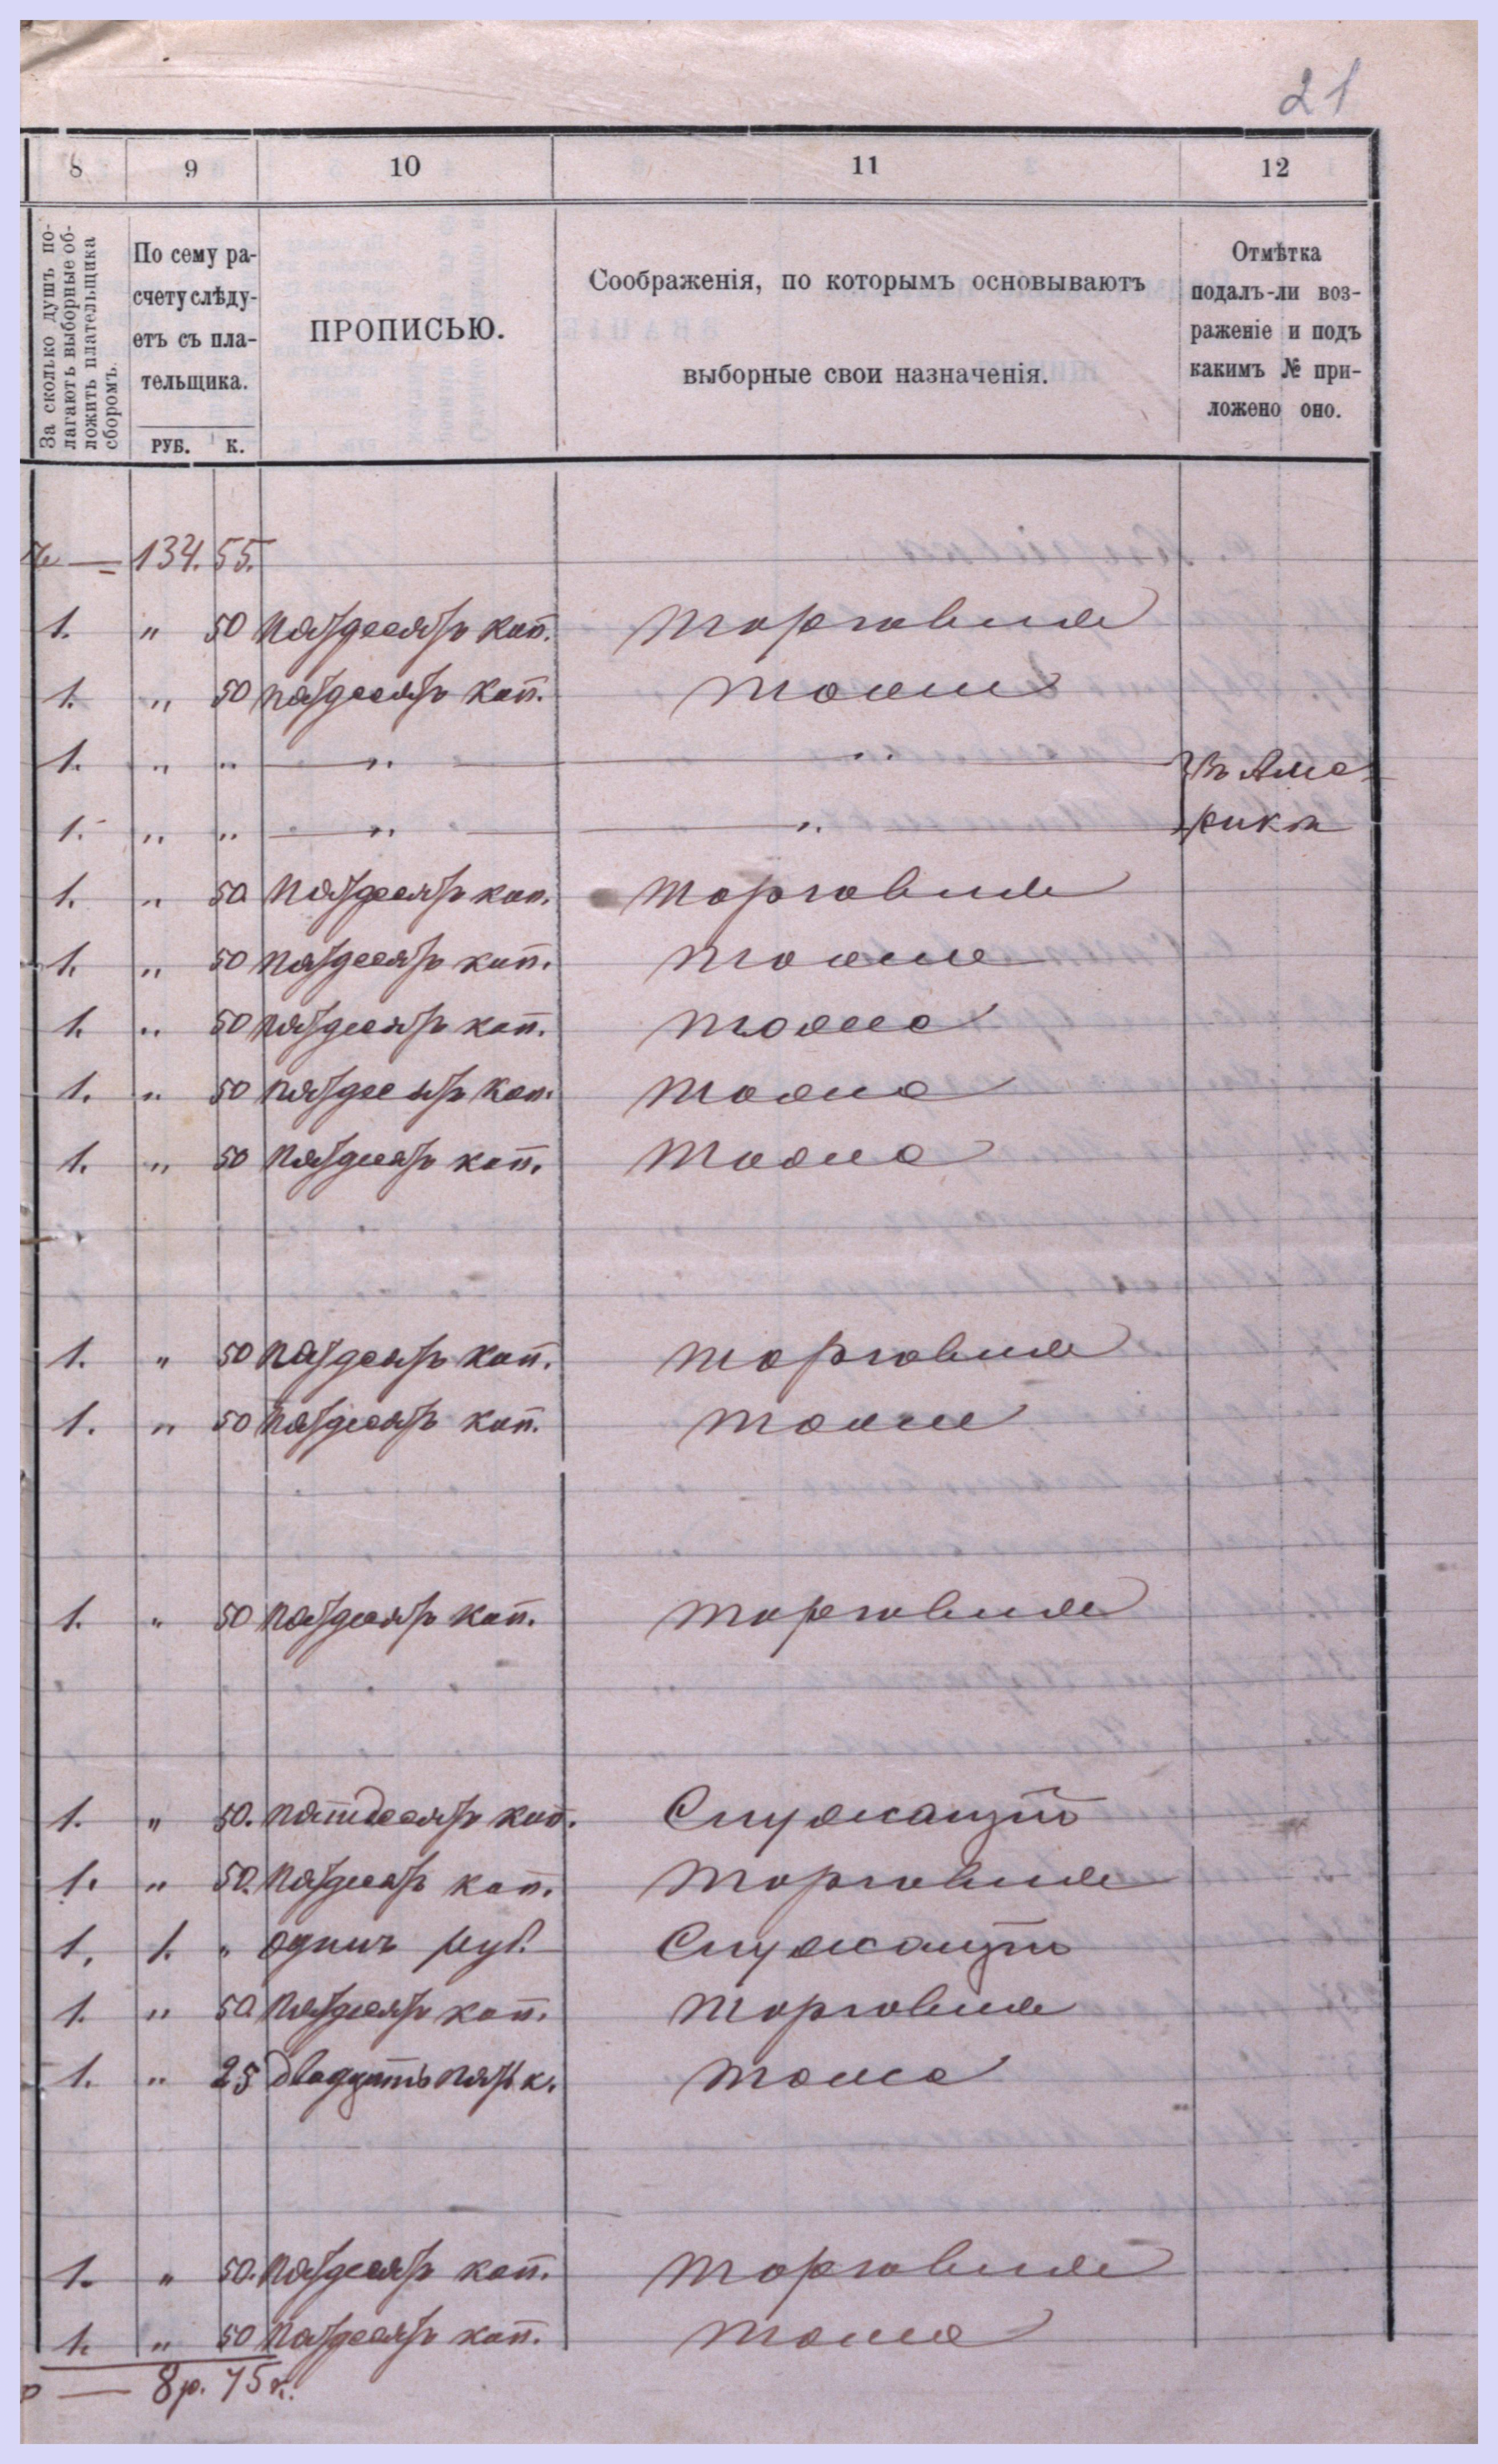 21
8 9 10 11 12
За сколько душъ по-
лагаютъ выборные об-
ложить плательщика
сборомъ.
По сему ра-
счету слѣду-
етъ съ пла-
тельщика.
РУБ. К.
ПРОПИСЬЮ.
Соображенія, по которымъ основываютъ
выборные свои назначенія.
Отмѣтка
подалъ-ли воз-
раженіе и подъ
какимъ № при-
ложено оно.
— 134. 55.
1. " 50 пятдесятъ коп. торговля
1. " 50 пятдесятъ коп. тоже
1. " " — " — — " — въ Аме
1. " " — " — — " — рикѣ
1. " 50 пятдесятъ коп. торговля
1. " 50 пятдесятъ коп. тоже
1. " 50 пятдесятъ коп. тоже
1. " 50 пятдесятъ коп. тоже
1. " 50 пятдесятъ коп. тоже
1. " 50 пятдесятъ коп. торговля
1. " 50 пятдесятъ коп. тоже
1. " 50 пятдесятъ коп. торговля
1. " 50. пятдесятъ коп. Служащій
1. " 50. пятдесятъ коп. торговля
1. 1. " одинъ руб. Служащій
1. " 50 пятдесятъ коп. торговля
1. " 25 двадцать пять к. тоже
1. " 50. пятдесятъ коп. торговля
1. " 50 пятдесятъ коп. тоже
— 8 р. 75 к.